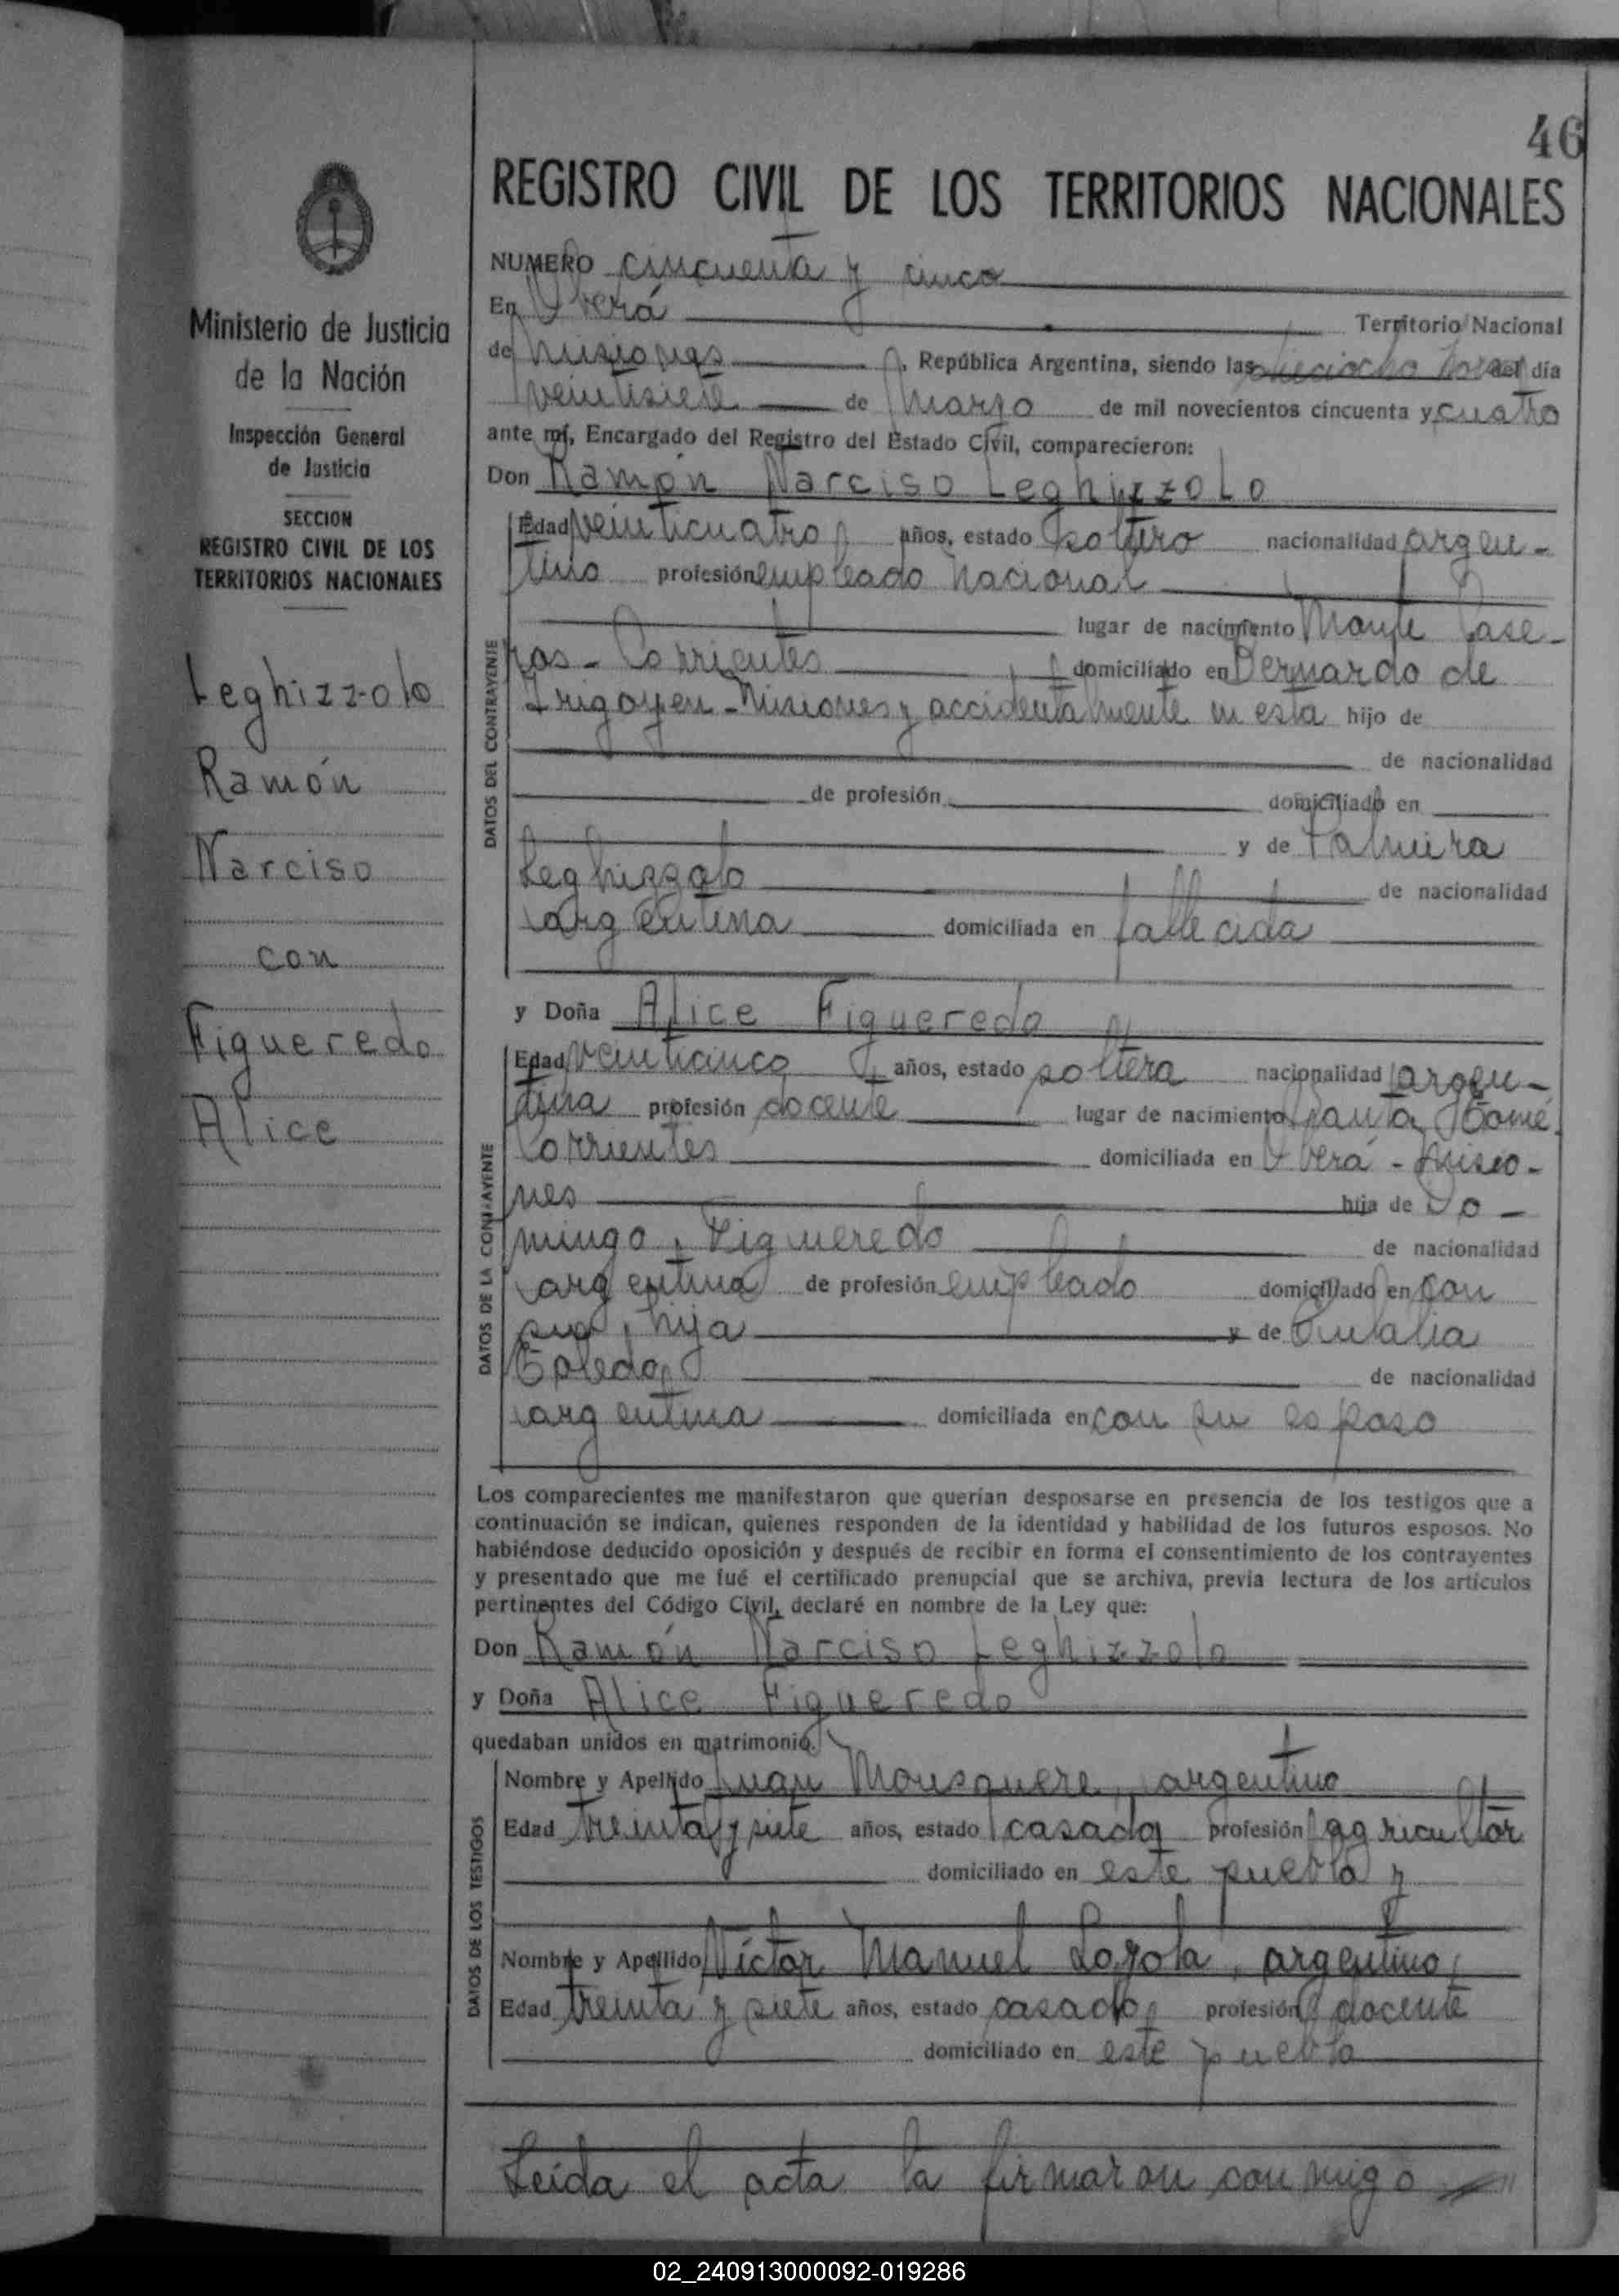 46
REGISTRO CIVIL DE LOS TERRITORIOS NACIONALES
Ministerio de Justicia
de la Nación
Inspección General
de Justicia
SECCION
REGISTRO CIVIL DE LOS
TERRITORIOS NACIONALES
Leghizzolo
Ramón
Narciso
con
Figueredo
Alice
NUMERO cincuenta y cinco
En Oberá Territorio Nacional
de Misiones, República Argentina, siendo las dieciocho horas del día
veintisiete de Marzo de mil novecientos cincuenta y cuatro
ante mí, Encargado del Registro del Estado Civil, comparecieron:
Don Ramón Narciso Leghizzolo
DATOS DEL CONTRAYENTE
Edad veinticuatro años, estado soltero nacionalidad argen-
tino profesión empleado nacional
lugar de nacimiento Monte Case-
ros - Corrientes domiciliado en Bernardo de
Irigoyen - Misiones y accidentalmente en esta hijo de
de nacionalidad
de profesión domiciliado en
y de Palmira
Leghizzolo de nacionalidad
argentina domiciliada en fallecida
y Doña Alice Figueredo
DATOS DE LA CONTRAYENTE
Edad veinticinco años, estado soltera nacionalidad argen-
tina profesión docente lugar de nacimiento Santo Tomé
Corrientes domiciliada en Oberá - Misio-
nes hija de Do-
mingo Figueredo de nacionalidad
argentina de profesión empleado domiciliado en con
su hija y de Eulalia
Toledo de nacionalidad
argentina domiciliada en con su esposo
Los comparecientes me manifestaron que querían desposarse en presencia de los testigos que a
continuación se indican, quienes responden de la identidad y habilidad de los futuros esposos. No
habiéndose deducido oposición y después de recibir en forma el consentimiento de los contrayentes
y presentado que me fué el certificado prenupcial que se archiva, previa lectura de los artículos
pertinentes del Código Civil, declaré en nombre de la Ley que:
Don Ramón Narciso Leghizzolo
y Doña Alice Figueredo
quedaban unidos en matrimonio.
DATOS DE LOS TESTIGOS
Nombre y Apellido Juan Mousquere, argentino
Edad treinta y siete años, estado casado profesión agricultor
domiciliado en este pueblo y
Nombre y Apellido Víctor Manuel Loyola, argentino
Edad treinta y siete años, estado casado, profesión docente
domiciliado en este pueblo
Leída el acta la firmaron conmigo
02_240913000092-019286